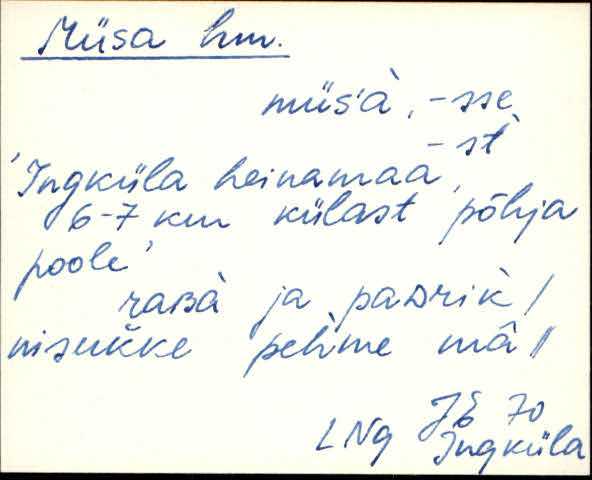 Müsa hm.
müs'à, -sse
-st
'Ingküla heinamaa,
6-7 km külast põhja
poole'
raʙà ja paᴅrìk /
nisukke pehme mâ //
JE 70
LNg Ingküla